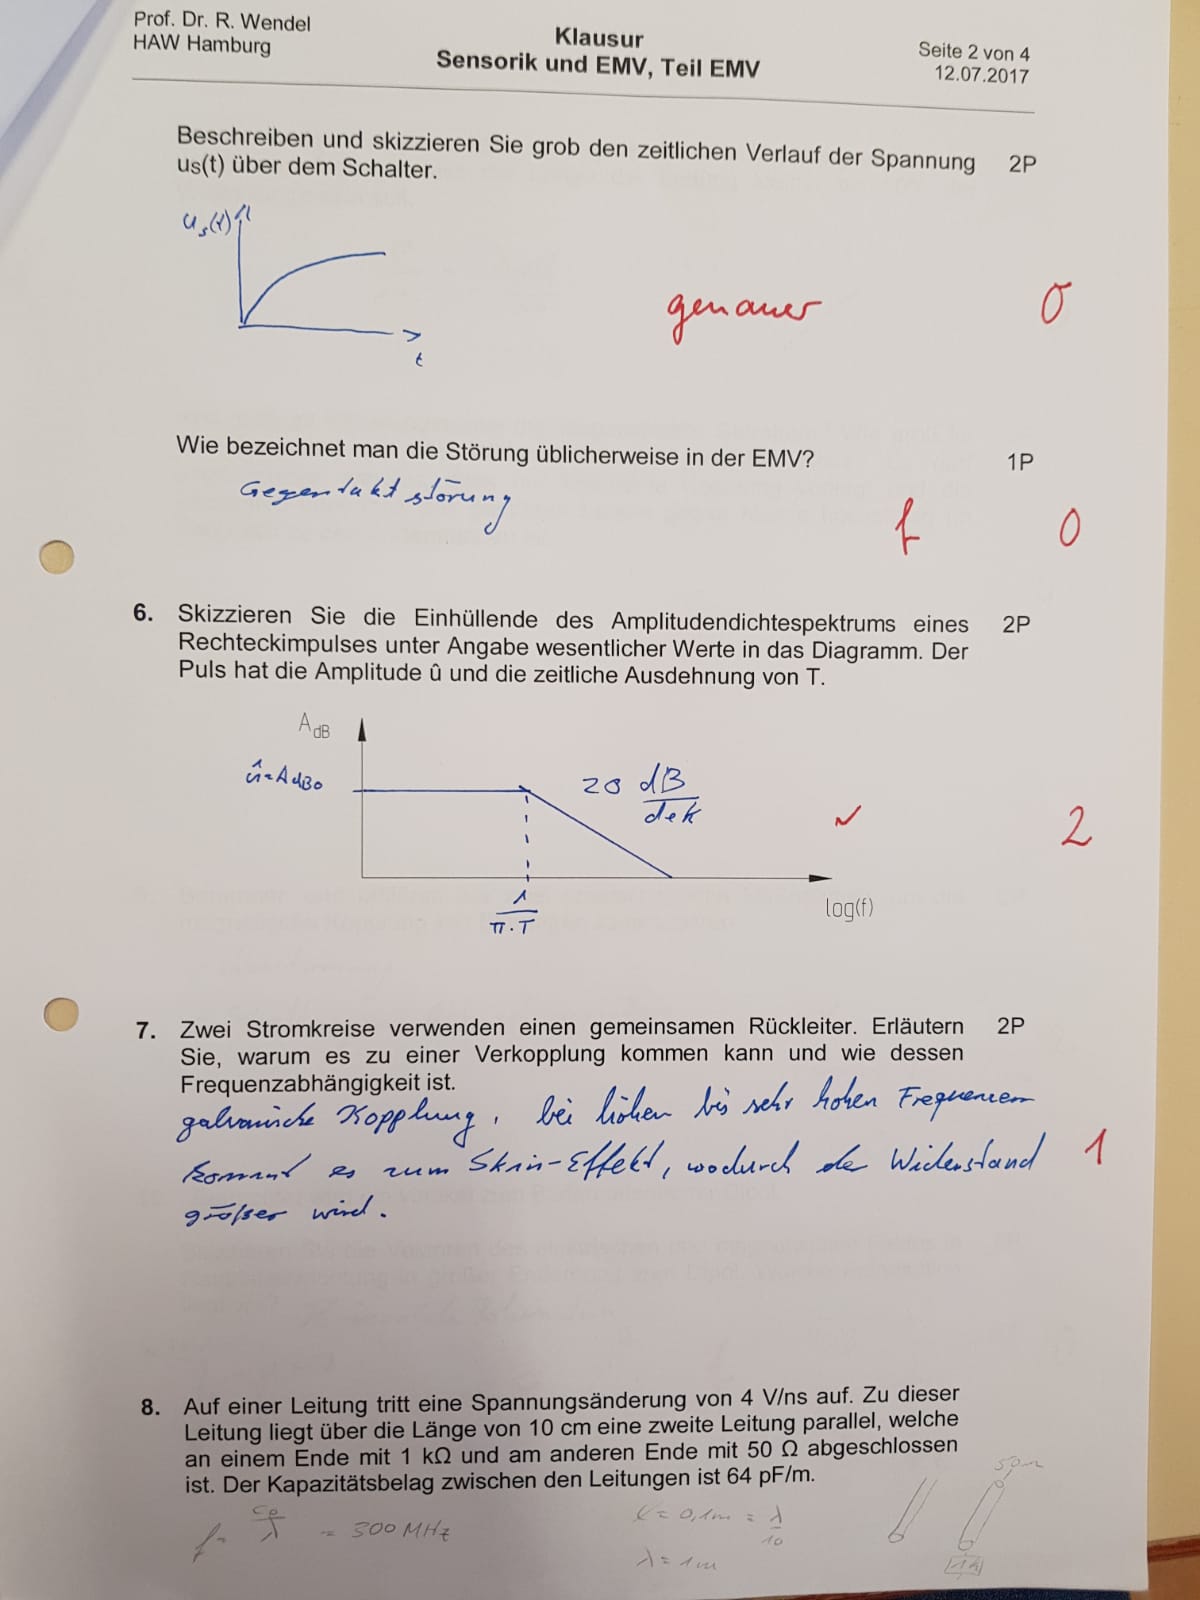 Prof. Dr. R. Wendel
HAW Hamburg
Klausur
Sensorik und EMV, Teil EMV
Seite 2 von 4
12.07.2017
Beschreiben und skizzieren Sie grob den zeitlichen Verlauf der Spannung 2P
us(t) über dem Schalter.
us(t)
t
genauer 0
Wie bezeichnet man die Störung üblicherweise in der EMV? 1P
Gegentaktstörung
f 0
6. Skizzieren Sie die Einhüllende des Amplitudendichtespektrums eines 2P
Rechteckimpulses unter Angabe wesentlicher Werte in das Diagramm. Der
Puls hat die Amplitude û und die zeitliche Ausdehnung von T.
A dB
û=AdB0
20 dB/dek
✓ 2
1/π·T
log(f)
7. Zwei Stromkreise verwenden einen gemeinsamen Rückleiter. Erläutern 2P
Sie, warum es zu einer Verkopplung kommen kann und wie dessen
Frequenzabhängigkeit ist.
galvanische Kopplung, bei hohen bis sehr hohen Frequenzen
kommt es zum Skin-Effekt, wodurch der Widerstand 1
größer wird.
8. Auf einer Leitung tritt eine Spannungsänderung von 4 V/ns auf. Zu dieser
Leitung liegt über die Länge von 10 cm eine zweite Leitung parallel, welche
an einem Ende mit 1 kΩ und am anderen Ende mit 50 Ω abgeschlossen
ist. Der Kapazitätsbelag zwischen den Leitungen ist 64 pF/m.
50Ω
f = c0/λ = 300 MHz
l = 0,1m = λ/10
λ = 1m
1k